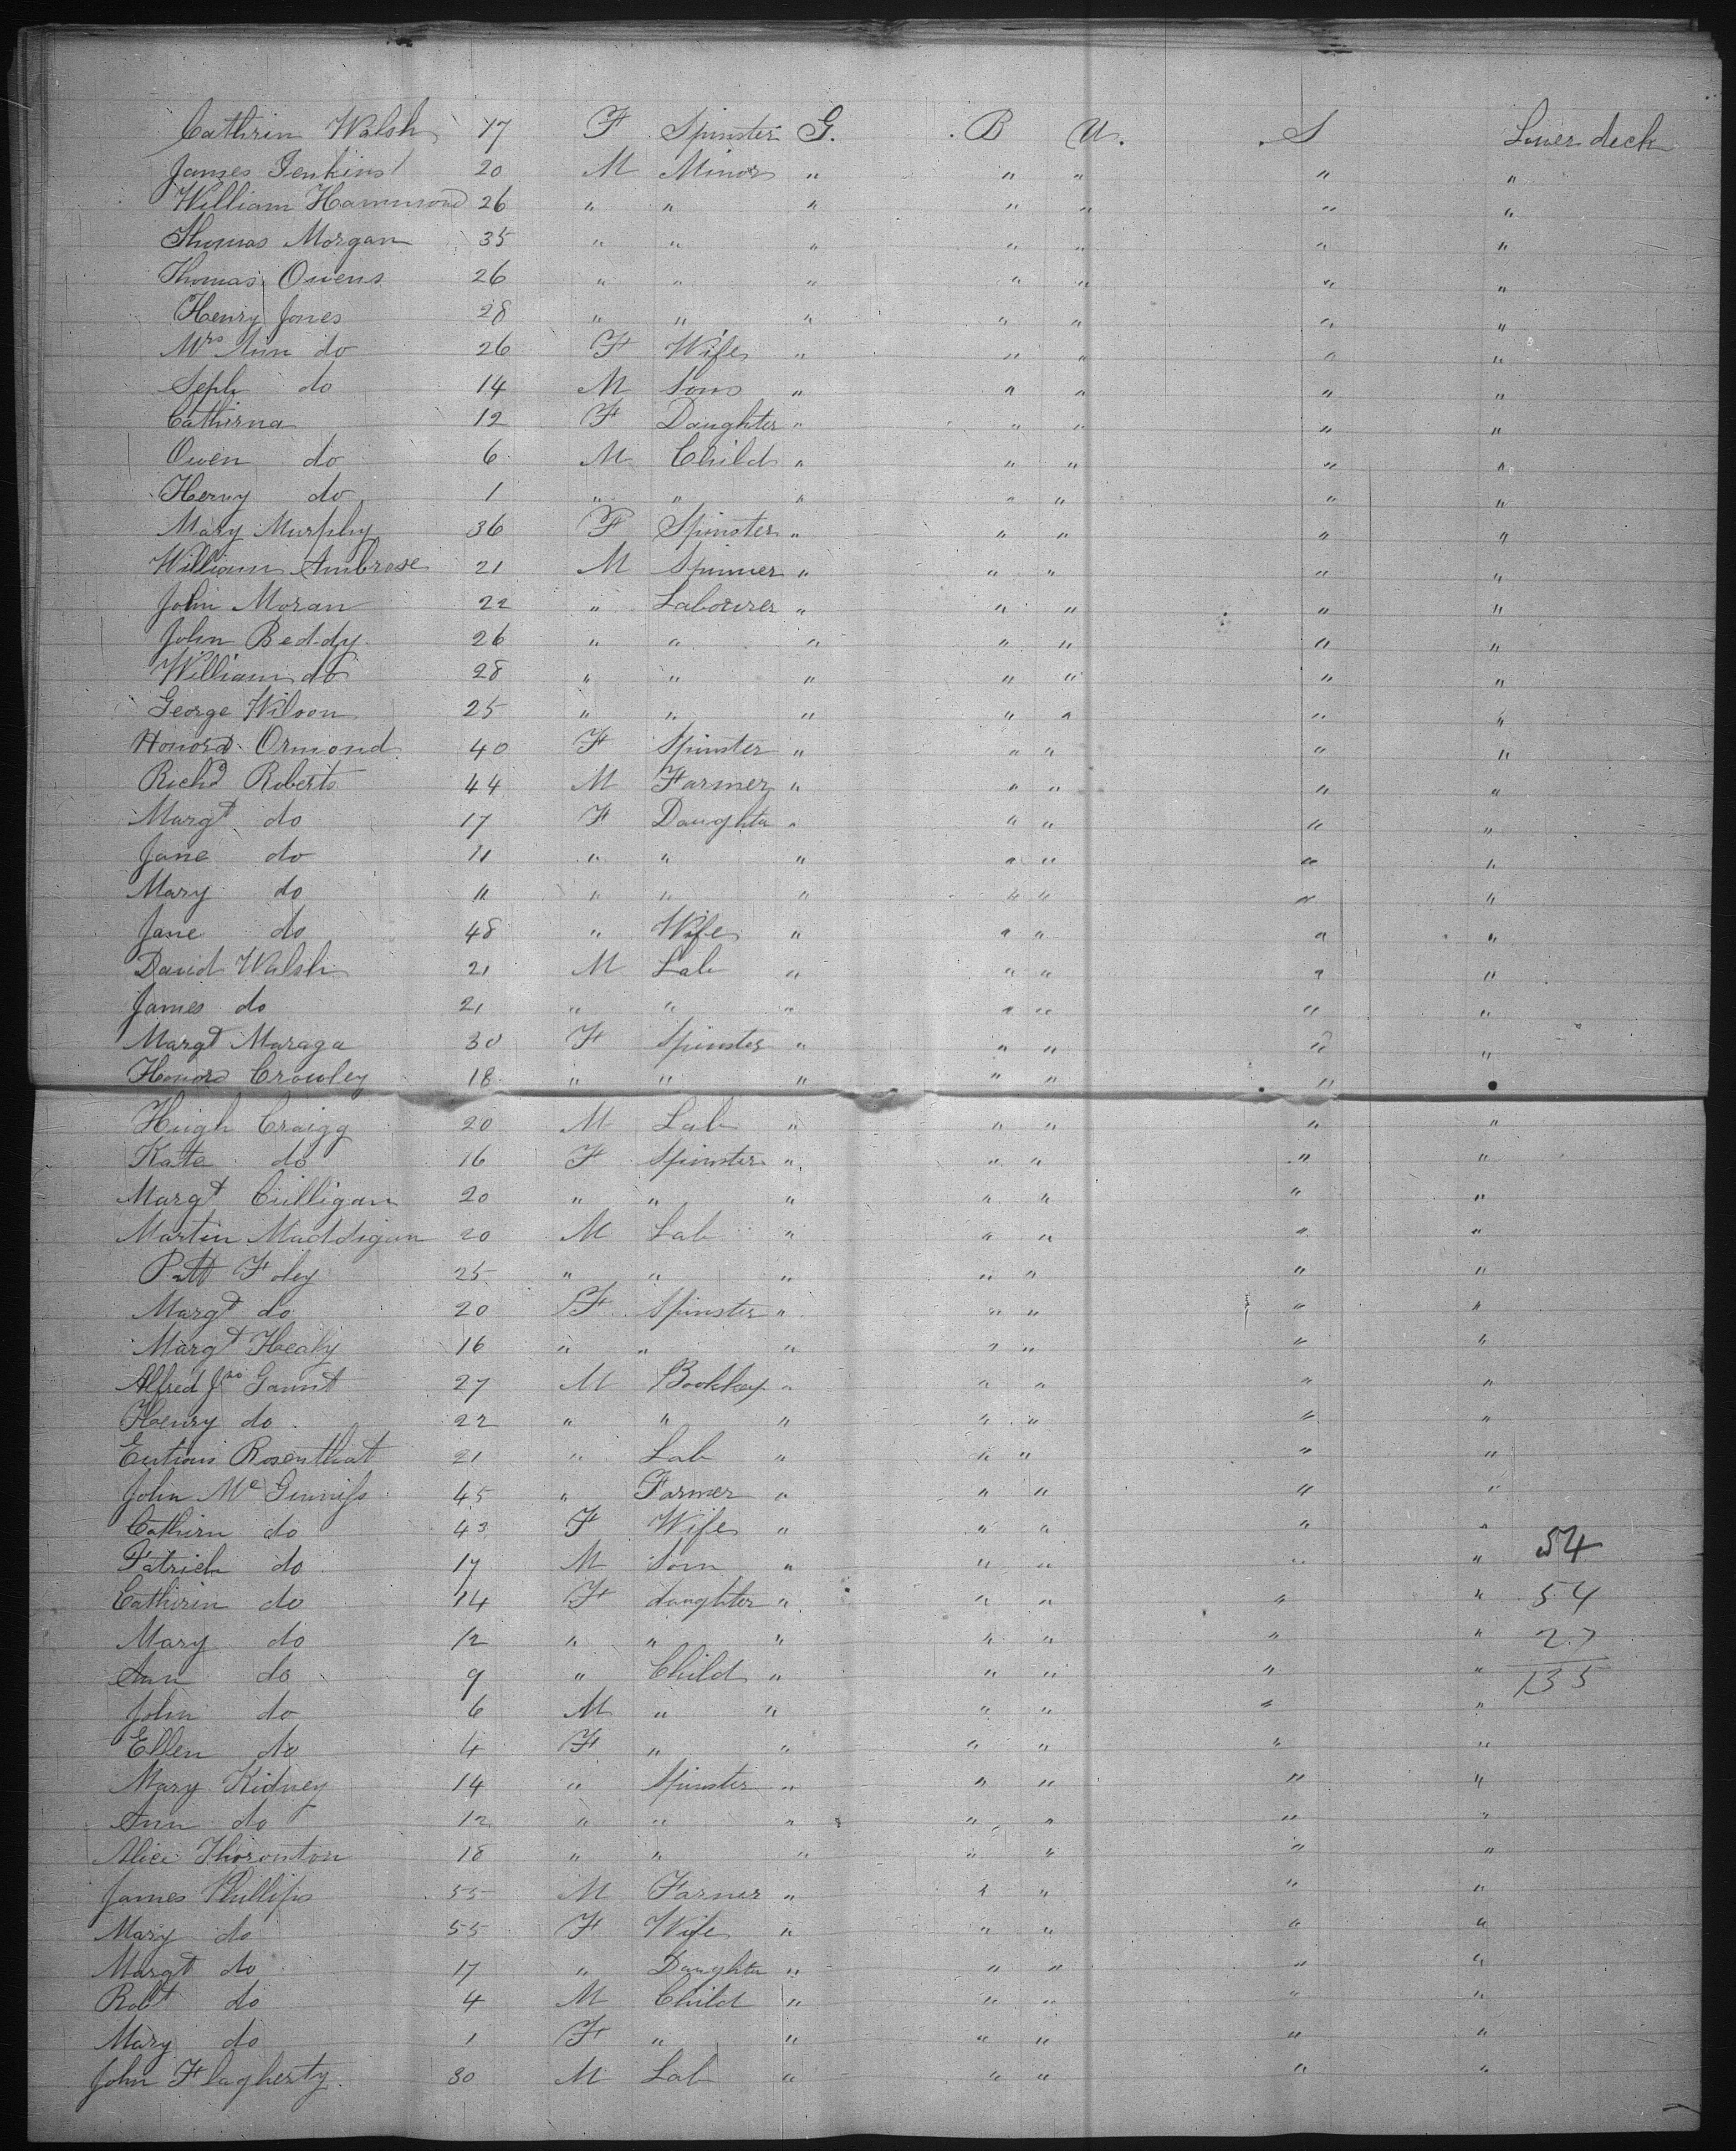 Cathrin Walsh 17 F Spinster G. B U. S Lower deck
James Jenkins 20 M Minor " " " " "
William Hammond 26 " " " " " " "
Thomas Morgan 35 " " " " " " "
Thomas Owens 26 " " " " " " "
Henry Jones 28 " " " " " " "
Mrs Ann do 26 F Wife " " " " "
Seph do 14 M Son " " " " "
Cathirna 12 F Daughter " " " " "
Owen do 6 M Child " " " " "
Henry do 1 " " " " " " "
Mary Murphy 36 F Spinster " " " " "
William Ambrose 21 M Spinner " " " " "
John Moran 22 " Labourer " " " " "
John Beddy 26 " " " " " " "
William do 28 " " " " " " "
George Wilson 25 " " " " " " "
Honord Ormond 40 F Spinster " " " " "
Richd Roberts 44 M Farmer " " " " "
Margt do 17 F Daughter " " " " "
Jane do 11 " " " " " " "
Mary do 11 " " " " " " "
Jane do 48 " Wife " " " " "
David Walsh 21 M Lab " " " " "
James do 21 " " " " " " "
Margt Maraga 30 F Spinster " " " " "
Honord Crowley 18 " " " " " "
Hugh Craigg 20 M Lab " " " " "
Kate do 16 F Spinster " " " " "
Margt Culligan 20 " " " " " " "
Martin Maddigan 20 M Lab " " " " "
Patt Foley 25 " " " " " " "
Margt do 20 F Spinster " " " " "
Margt Healy 16 " " " " " " "
Alfred Jno Gaunt 27 M Bookkep " " " " "
Henry do 22 " " " " " " "
Rosenthat 21 " Lab " " " " "
John Mc Ginniss 45 " Farmer " " " " "
Cathirn do 43 F Wife " " " " "
Patrick do 17 M Son " " " " " 54
Cathirin do 14 F daughter " " " " " 54
Mary do 12 " " " " " " " 27
Ann do 9 " Child " " " " " 135
John do 6 M " " " " " "
Ellen do 4 F " " " " " "
Mary Kidney 14 " Spinster " " " " "
Ann do 12 " " " " " " "
Alice Thoronton 18 " " " " " " "
James Phillips 55 M Farmer " " " " "
Mary do 55 F Wife " " " " "
Margt do 17 " Daughter " " " " "
Robt do 4 M Child " " " " "
Mary do 1 F " " " " " "
John Flagherty 30 M Lab " " " " "